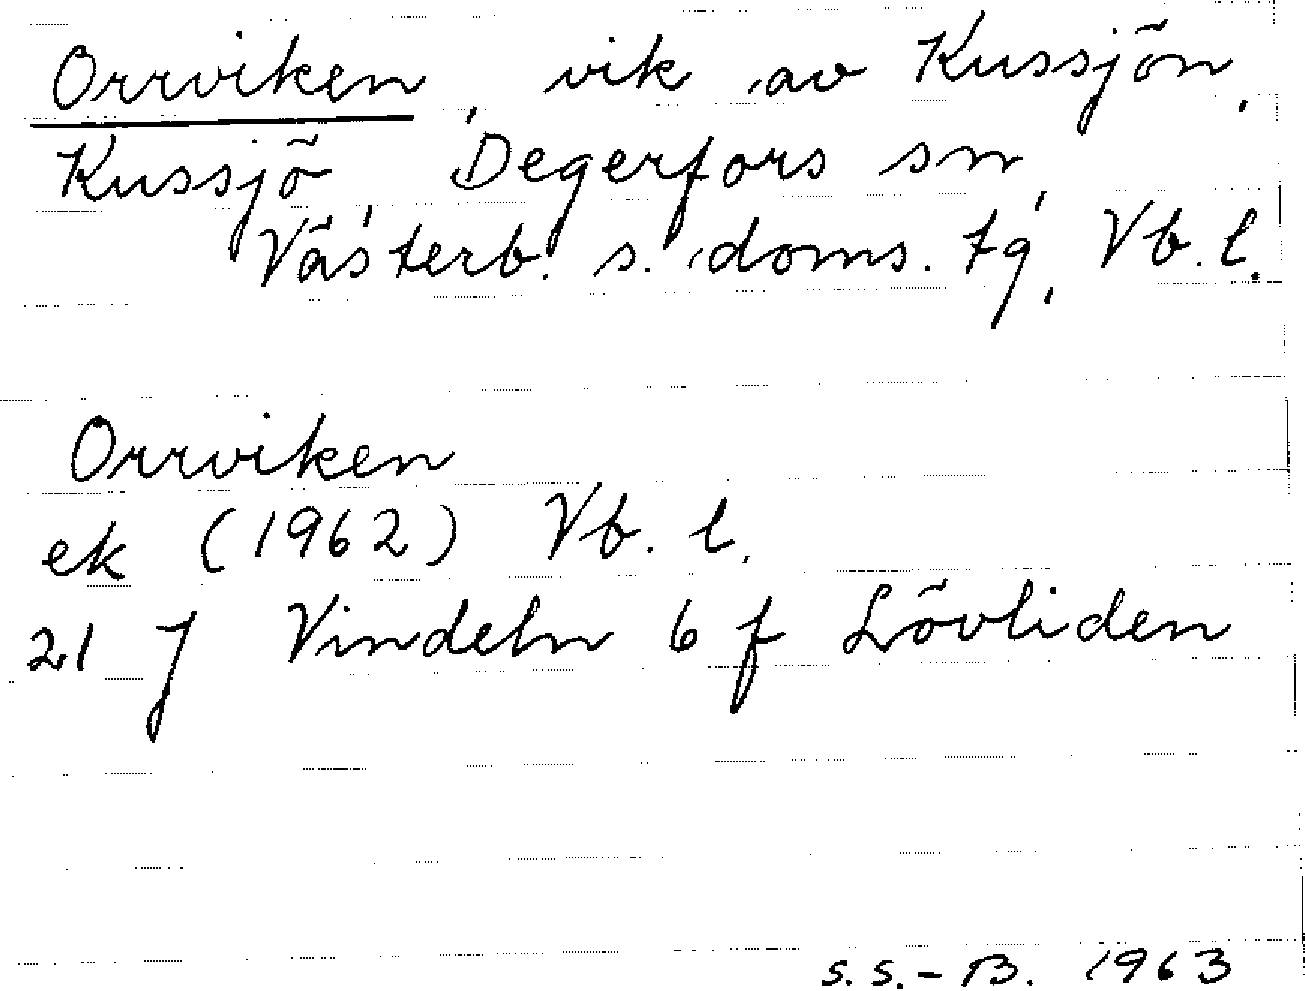 Orrviken, vik av Kussjön,
Kussjö, Degerfors sn,
Västerb. s. doms. tg, Vb. l.
Orrviken
ek (1962) Vb. l.
21 J Vindeln 6 f Lövliden
S.S.-B. 1963